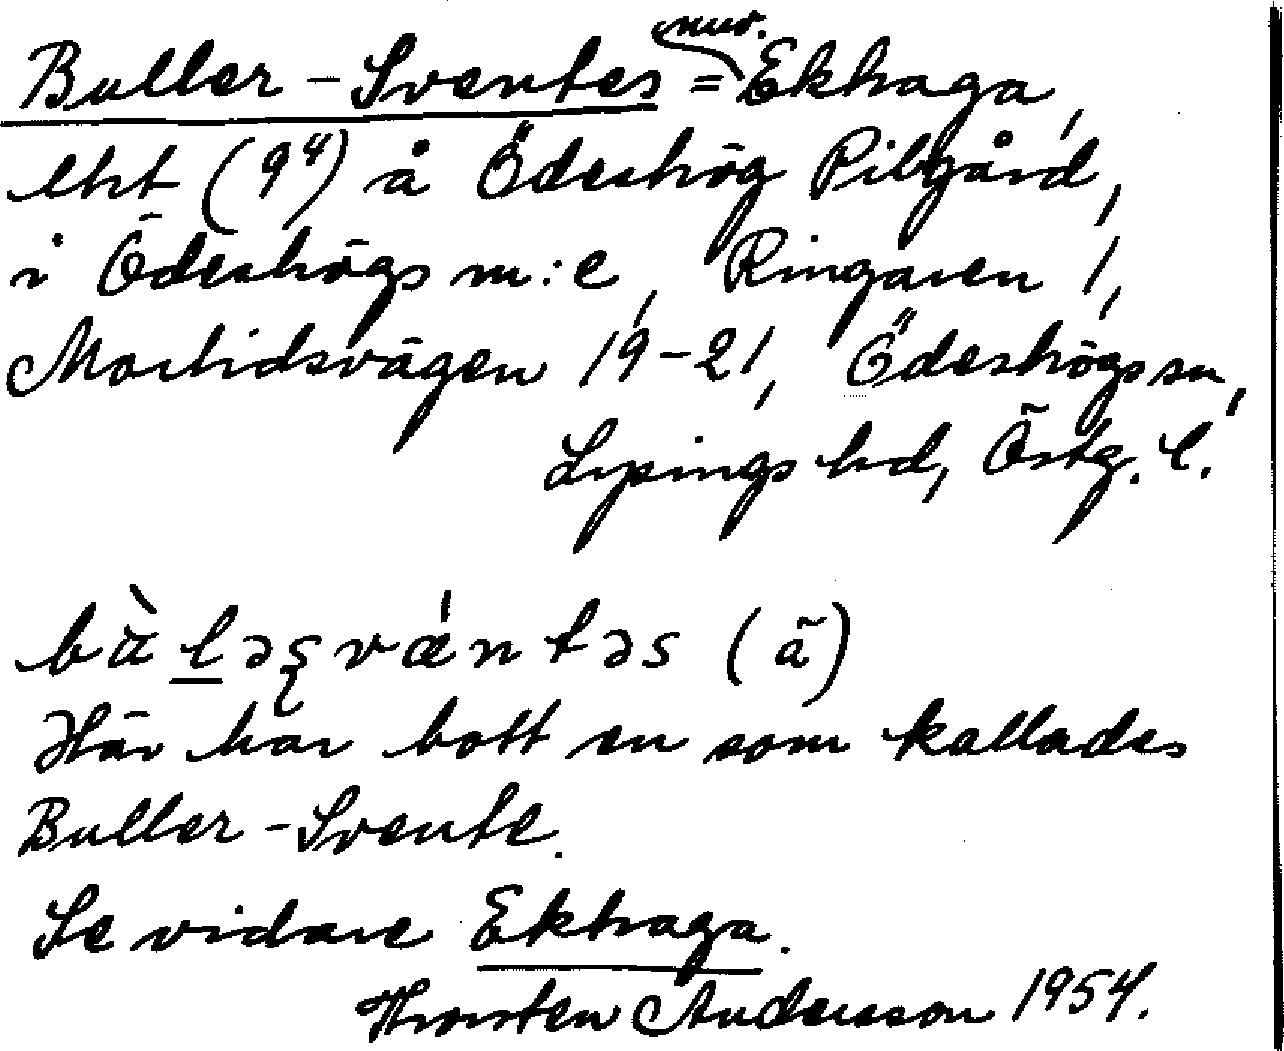 Buller-Sventes = nuv. Ekhaga,
lht (9⁴) å Ödeshög Pilgård,
i Ödeshögs m:e, Ringaren 1,
Mortidsvägen 19-21, Ödeshögs sn,
Lysings hd, Östg. l.
bàləʂvántəs (ã)
Här har bott en som kallades
Buller-Svente.
Se vidare Ekhaga.
Thorsten Andersson 1954.